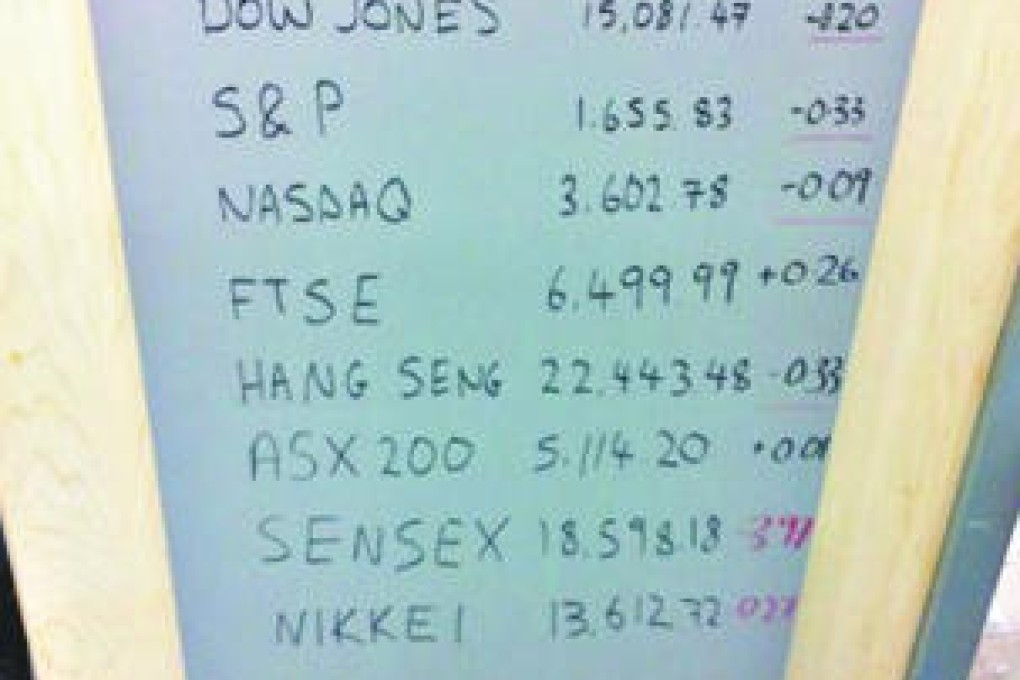 DOW JONES 15,081.47
S&P 1.655.83 -0.33
NASDAQ 3.602 78 -0.09
FTSE 6.499.99 +0.26
HANG SENG 22.443 48 -0.33
ASX 200 5.114 20
SENSEX 18.598.18
NIKKEI 13.612 72